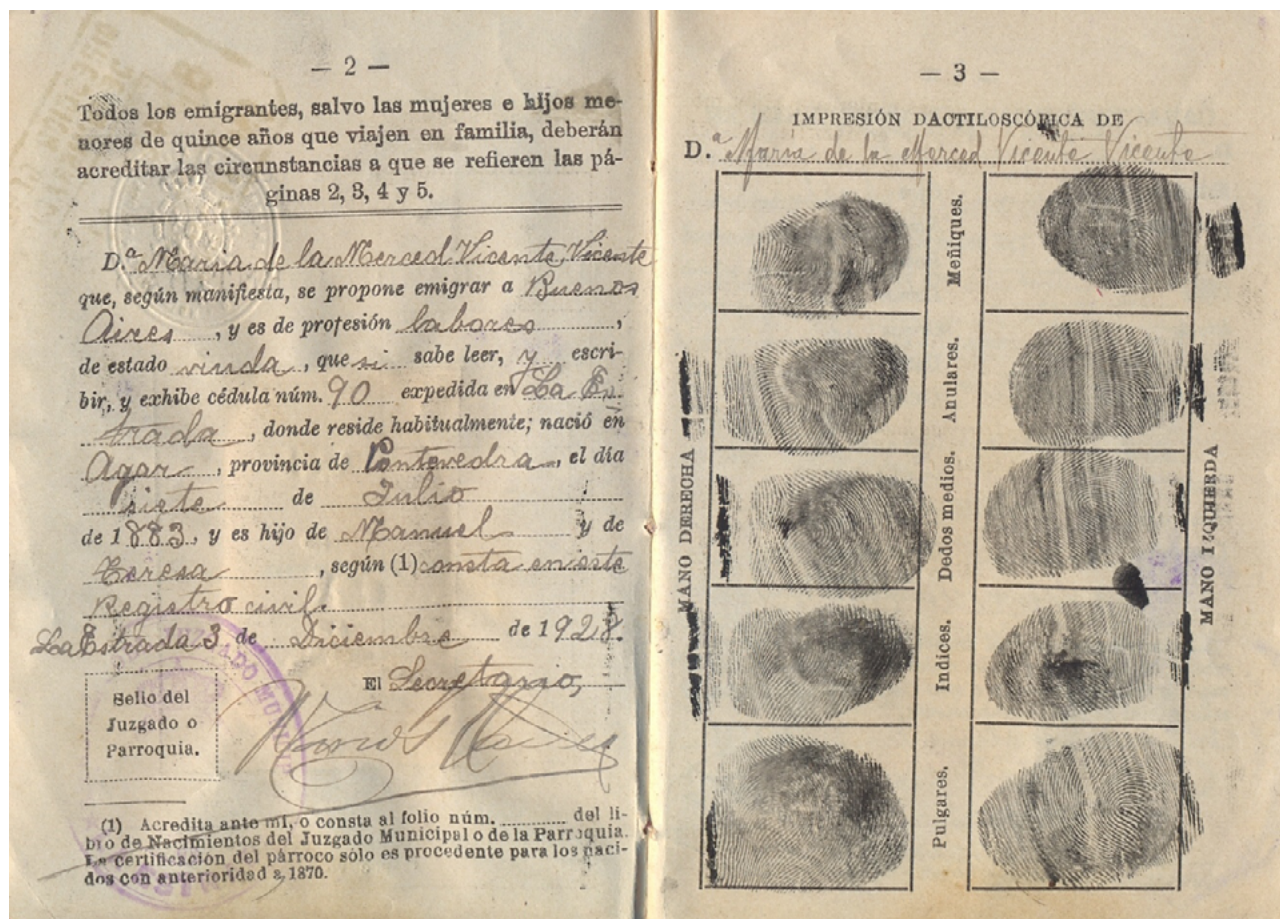 — 2 —
Todos los emigrantes, salvo las mujeres e hijos me-
nores de quince años que viajen en familia, deberán
acreditar las circunstancias a que se refieren las pá-
ginas 2, 3, 4 y 5.
D.ª Maria de la Merced Vicente Vicente
que, según manifiesta, se propone emigrar a Buenos
Aires, y es de profesión labores,
de estado viuda, que si sabe leer, y escri-
bir, y exhibe cédula núm. 90 expedida en La Es
trada, donde reside habitualmente; nació en
Agar, provincia de Pontevedra, el día
siete de Julio
de 1883, y es hijo de Manuel y de
Teresa, según (1) consta en este
Registro civil.
La Estrada 3 de Diciembre de 1928.
El Secretario,
Sello del
Juzgado o
Parroquia.
(1) Acredita ante mí, o consta al folio núm. del li-
bro de Nacimientos del Juzgado Municipal o de la Parroquia.
La certificación del párroco sólo es procedente para los naci-
dos con anterioridad a 1870.
— 3 —
IMPRESIÓN DACTILOSCÓPICA DE
D.ª Maria de la Merced Vicente Vicente
MANO DERECHA
Meñiques.
Anulares.
Dedos medios.
Indices.
Pulgares.
MANO IZQUIERDA